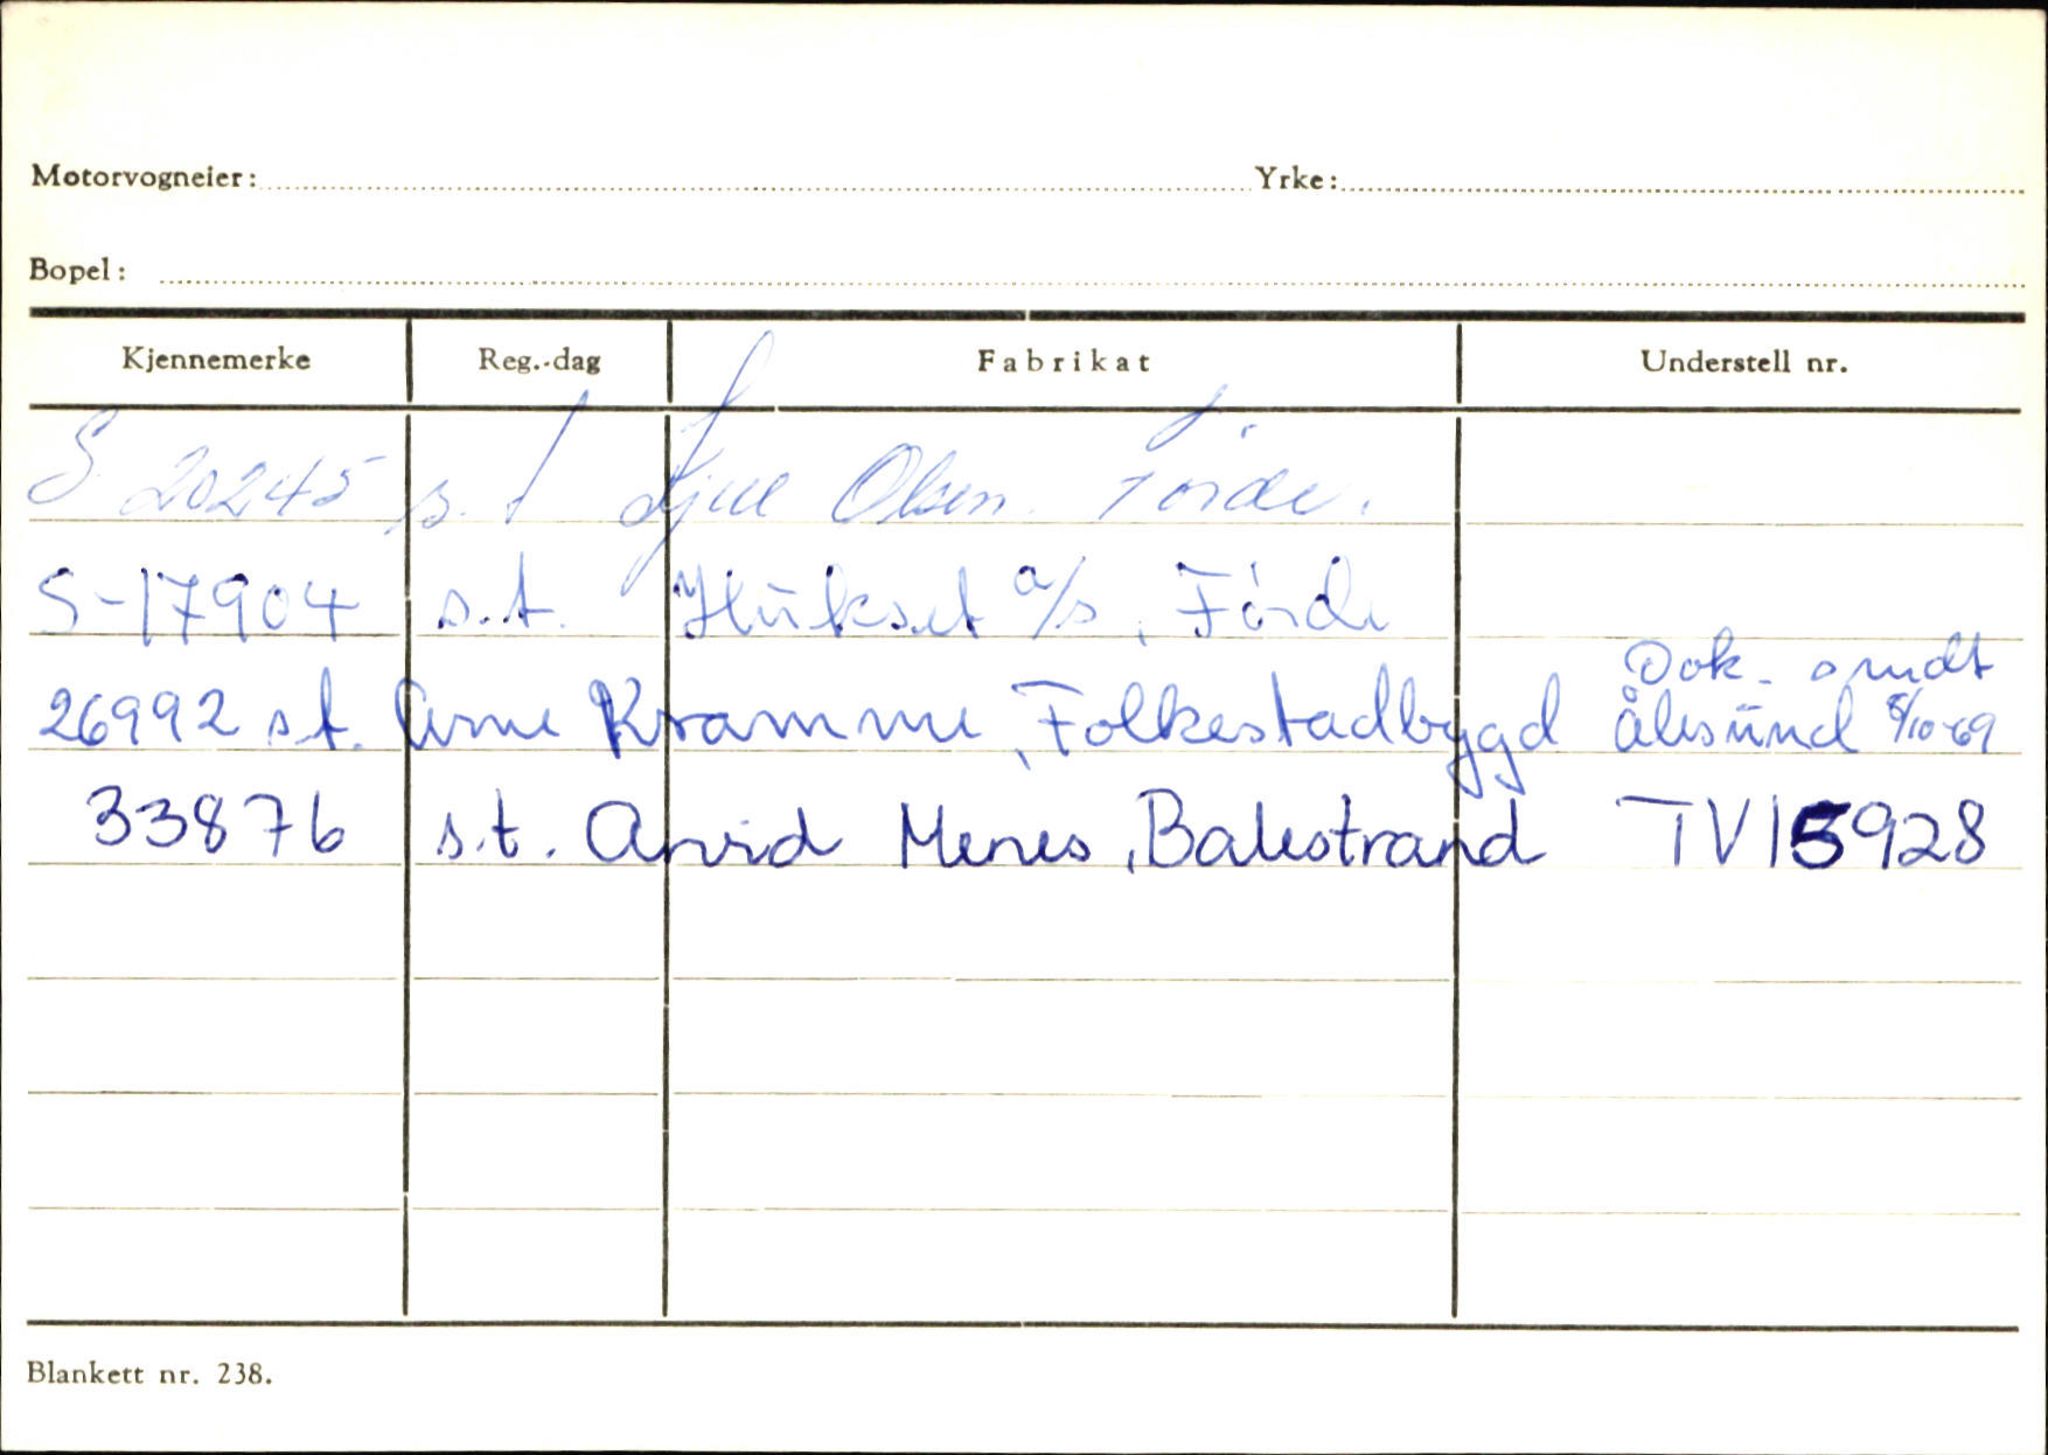 Motorvogneier: Yrke:
Bopel:
Kjennemerke Reg.-dag Fabrikat Understell nr.
S 20245 s.t Olsen. Förde.
S-17904 s.t. a/s, Förde
Dok. omdt
26992 s.t. Arne Kramme, Folkestadbygd Ålesund 8/10-69
33876 s.t. Arvid Menes, Balestrand TV15928
Blankett nr. 238.